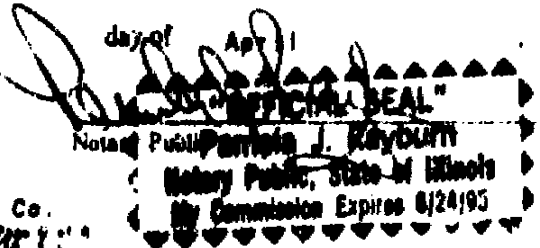 day of April
"OFFICIAL SEAL"
Notary Public
Pamela J. Rayburn
Notary Public, State of Illinois
My Commission Expires 8/24/95
Co.